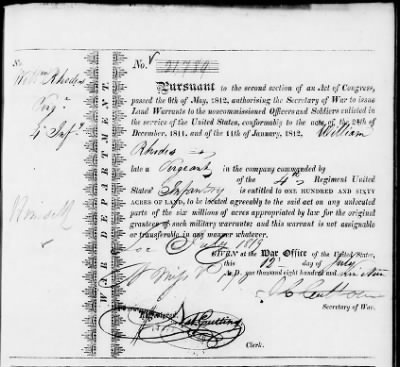 No. 21789
Willm Rhodes
Serjt
4th Inft
Himself
WAR DEPARTMENT.
Pursuant to the second section of an Act of Congress,
passed the 6th of May, 1812, authorising the Secretary of War to issue
Land Warrants to the noncommissioned Officers and Soldiers enlisted in
the service of the United States, conformably to the acts of the 24th of
December, 1811, and of the 11th of January, 1812, William
Rhodes
late a Sergeant in the company commanded by
of the 4th Regiment United
States' Infantry is entitled to ONE HUNDRED AND SIXTY
ACRES OF LAND, to be located agreeably to the said act on any unlocated
parts of the six millions of acres appropriated by law for the original
grantees of such military warrants: and this warrant is not assignable
or transferable in any manner whatever.
July 1819
GIVEN at the War Office of the United States,
this 12th day of July
A.D. one thousand eight hundred and
J C Calhoun
Secretary of War.
Registered.
Nat Cutting
Clerk.